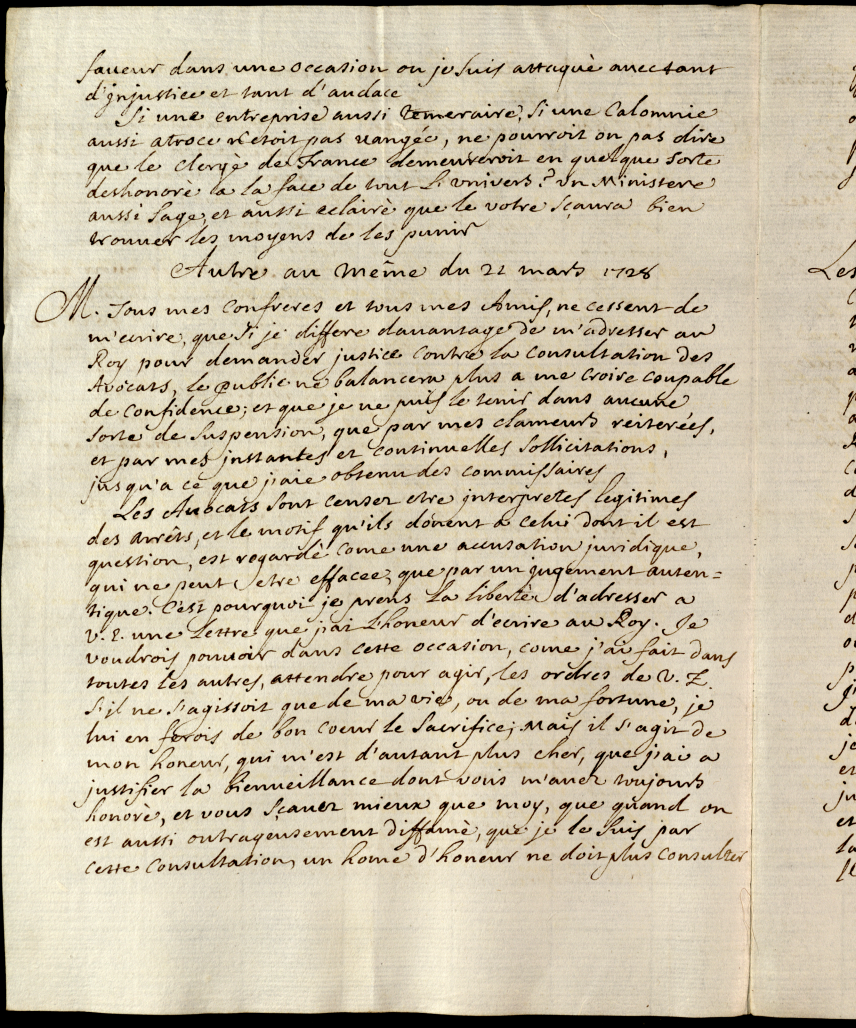 faveur dans une occasion ou je suis attaquè avec tant
d'injustice et tant d'audace
Si une entreprise aussi temeraire, si une Calomnie
aussi atroce n'etoit pas vangée, ne pourroit on pas dire
que le Clergè de France demeureroit en quelque sorte
deshonorè a la face de tout L'univers? Un Ministere
aussi sage, et aussi eclairè que le votre sçaura bien
trouver les moyens de les punir
Autre au même du 22 mars 1728
M. Tous mes Confreres et tous mes Amis, ne cessent de
m'ecrire, que si je differe davantage de m'adresser au
Roy pour demander justice contre la Consultation des
Avocats, le public ne balancera plus a me croire coupable
de Confidence; et que je ne puis le tenir dans aucune
sorte de suspension, que par mes clameurs reiterées,
et par mes instantes et continuelles sollicitations,
jusqu'a ce que j'aie obtenu des commissaires
Les Avocats sont censez etre interpretes legitimes
des arrêts, et le motif qu'ils donent a celui dont il est
question, est regardè come une accusation juridique,
qui ne peut etre effacée, que par un jugement auten=
tique. C'est pourquoi je prens la libertè d'adresser a
V. E. une Lettre que j'ai L'honeur d'ecrire au Roy. Je
voudrois pouvoir dans cette occasion, come j'ai fait dans
toutes les autres, attendre pour agir, les ordres de V. E.
S'il ne s'agissoit que de ma vie, ou de ma fortune, je
lui en ferois de bon coeur le sacrifice; Mais il s'agit de
mon honeur, qui m'est d'autant plus cher, que j'ai a
justifier la bienveillance dont vous m'avez toujours
honorè, et vous sçavez mieux que moy, que quand on
est aussi outrageusement diffamè, que je le suis par
cette Consultation, un home d'honeur ne doit plus consulter
Les